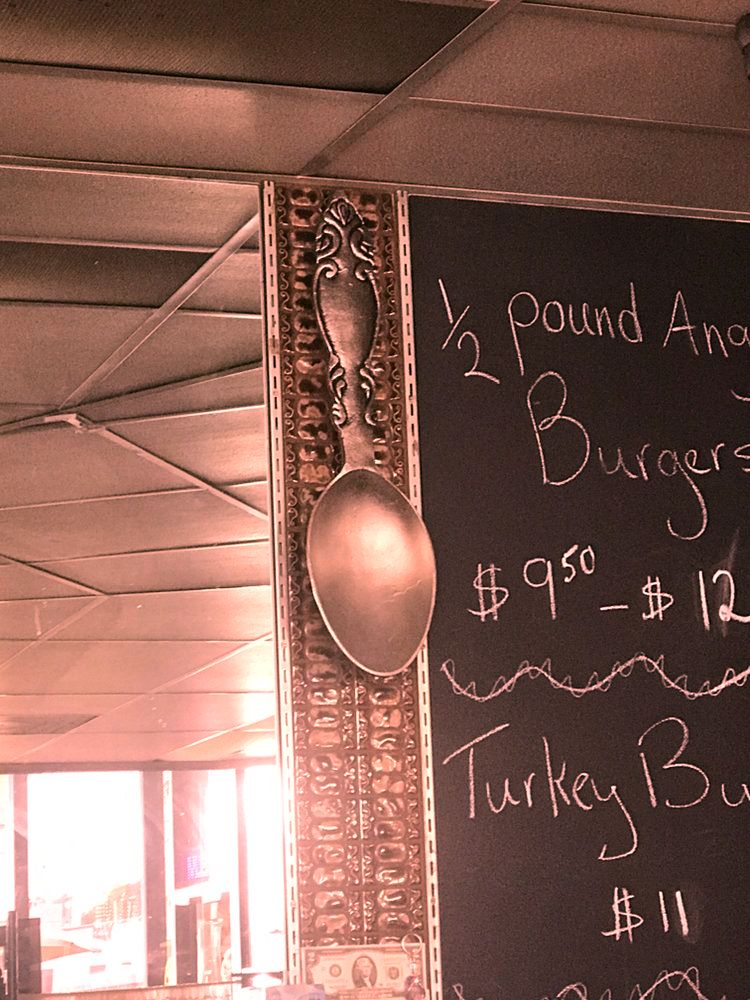 1/2 pound Ang
Burgers
$9.50 - $12
Turkey Bu
$11